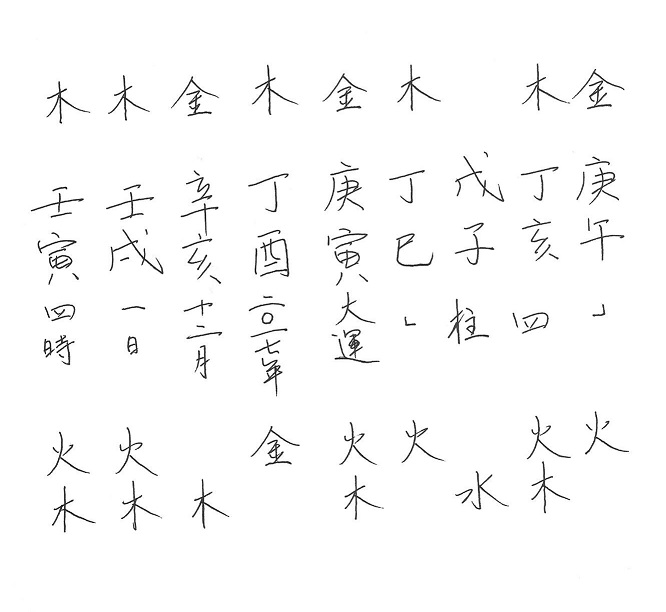 金庚午」火
木丁亥四火木
戊子柱水
木丁巳」火
金庚寅大運火木
木丁酉二〇一七年金
金辛亥十二月木
木壬戌一日火木
木壬寅四時火木